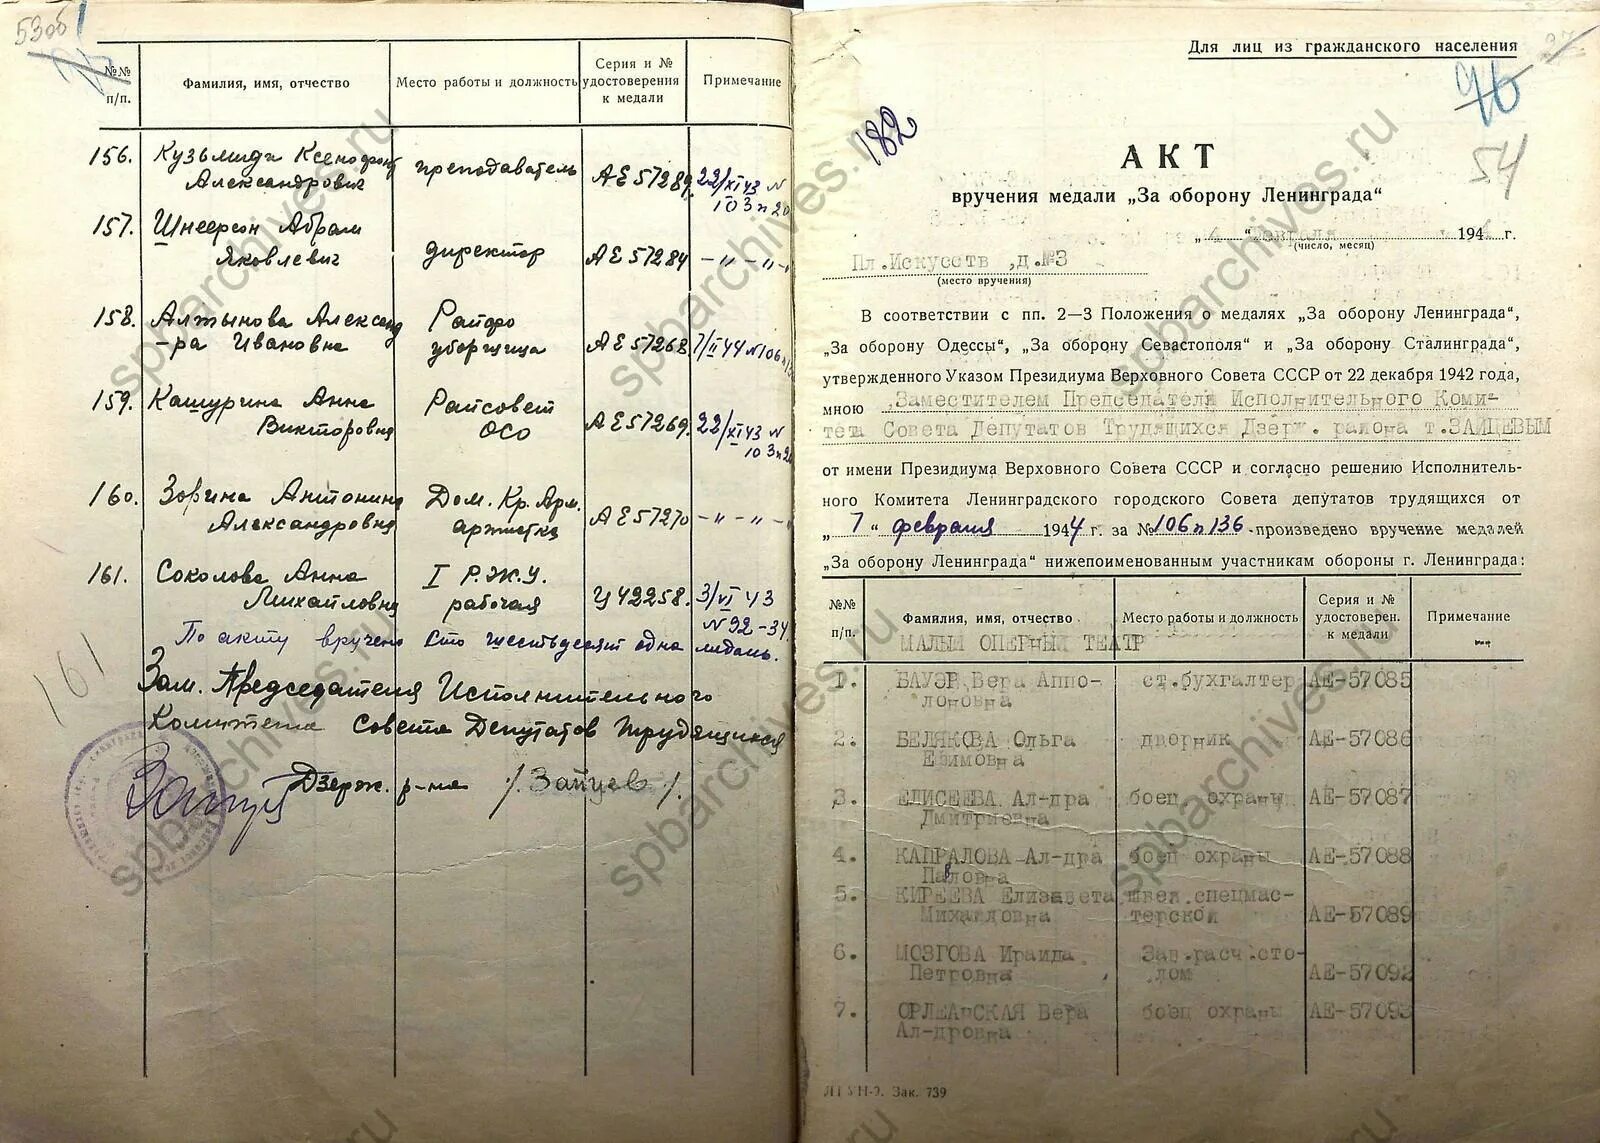 53об
№№
п/п.
Фамилия, имя, отчество
Место работы и должность
Серия и №
удостоверения
к медали
Примечание
156. Кузьмиди Ксенофонт преподаватель АЕ 57289. 22/XI 43 N
Александрович 103 п 20
157. Шнеерсон Абрам
Яковлевич директор АЕ 57284 –„–„–
158. Алтынова Александ Райфо
-ра Ивановна уборщица АЕ 57268. 7/II 44 N 106
159. Кашурина Анна Райсовет
Викторовна ОСО АЕ 57269. 22/XI 43 N
103 п 20
160. Зорина Антонина Дом. Кр. Арм.
Александровна артистка АЕ 57270 –„–„–
161. Соколова Анна I Р.Ж.У.
Михайловна рабочая Ц 42258. 3/VI 43
N 92-34
По акту вручено сто шестьдесят одна медаль.
161
Зам. Председателя Исполнительного
Комитета Совета Депутатов Трудящихся
Дзерж. р-на /Зайцев/.
Для лиц из гражданского населения
96
182
54
АКТ
вручения медали „За оборону Ленинграда“
„4“ февраля 1944 г.
(число, месяц)
Пл.Искусств ,д.№3
(место вручения)
В соответствии с пп. 2—3 Положения о медалях „За оборону Ленинграда“,
„За оборону Одессы“, „За оборону Севастополя“ и „За оборону Сталинграда“,
утвержденного Указом Президиума Верховного Совета СССР от 22 декабря 1942 года,
мною Заместителем Председателя Исполнительного Коми-
тета Совета Депутатов Трудящихся Дзерж. района т.ЗАЙЦЕВЫМ
от имени Президиума Верховного Совета СССР и согласно решению Исполнитель-
ного Комитета Ленинградского городского Совета депутатов трудящихся от
„7“ февраля 1944 г. за № 106 п 136 произведено вручение медалей
„За оборону Ленинграда“ нижепоименованным участникам обороны г. Ленинграда:
№№
п/п.
Фамилия, имя, отчество
Место работы и должность
Серия и №
удостоверен.
к медали
Примечание
МАЛЫЙ ОПЕРНЫЙ ТЕАТР
1. БАУЭР Вера Аппо- ст.бухгалтер АЕ-57085
лоновна
2. БЕЛЯКОВА Ольга дворник АЕ-57086
Ефимовна
3. ЕЛИСЕЕВА Ал-дра боец охраны АЕ-57087
Дмитриевна
4. КАПРАЛОВА Ал-дра боец охраны АЕ-57088
Павловна
5. КИРЕЕВА Елизавета швея.спецмас-
Михайловна терской АЕ-57089
6. МОЗГОВА Ираида Зав.расч.сто-
Петровна лом АЕ-57092
7. ОРЛЕАНСКАЯ Вера боец охраны АЕ-57093
Ал-дровна
Зак. 739
spbarchives.ru